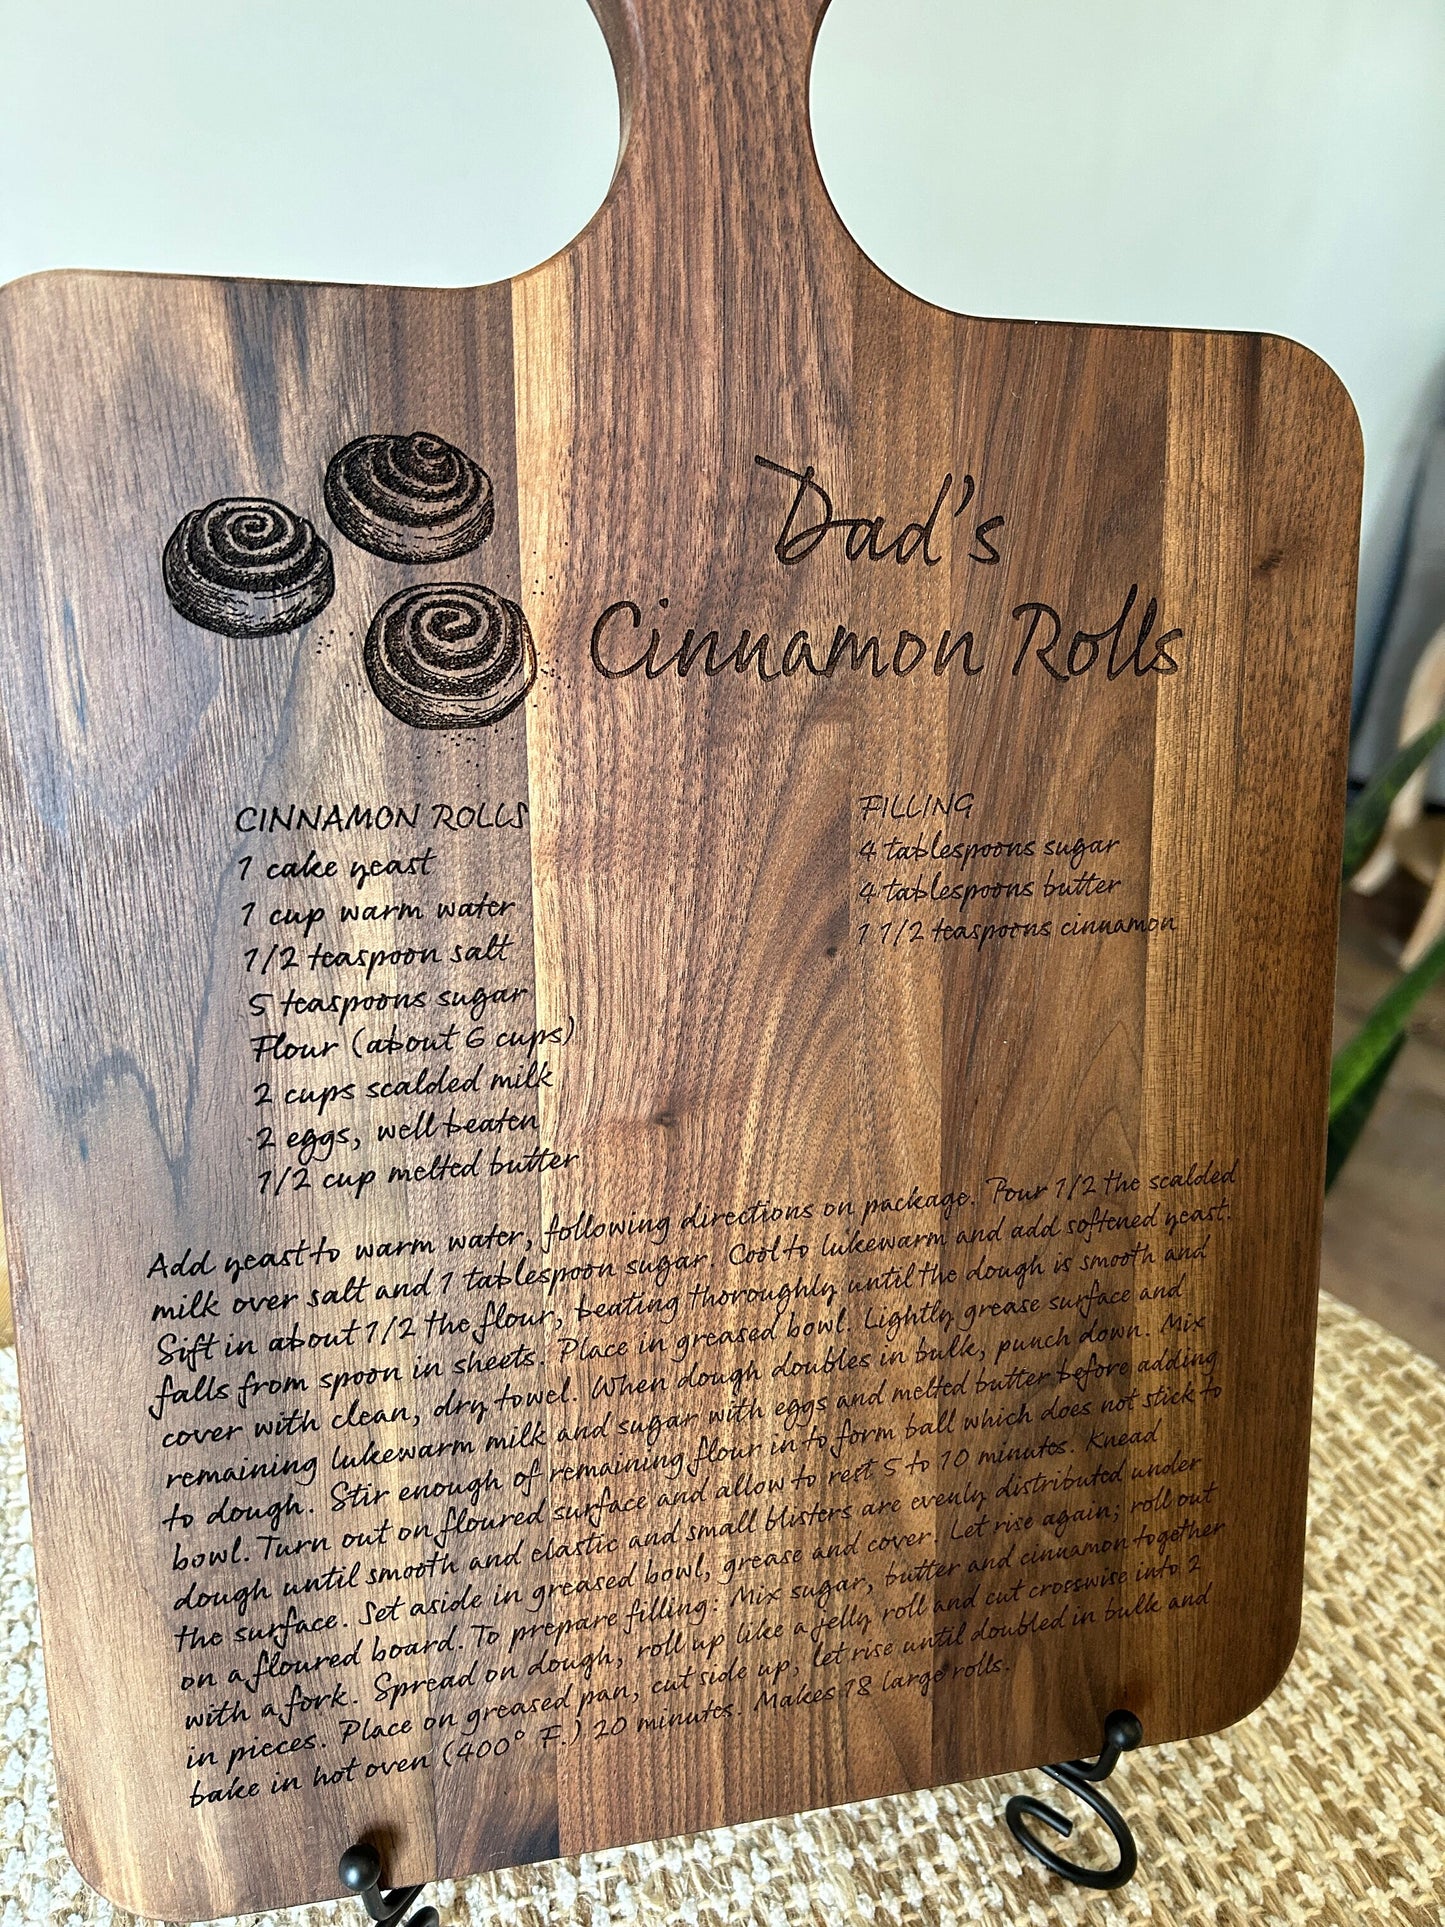 Dad's
Cinnamon Rolls
CINNAMON ROLLS
1 cake yeast
1 cup warm water
1/2 teaspoon salt
5 teaspoons sugar
Flour (about 6 cups)
2 cups scalded milk
2 eggs, well beaten
1/2 cup melted butter
FILLING
4 tablespoons sugar
4 tablespoons butter
1 1/2 teaspoons cinnamon
Add yeast to warm water, following directions on package. Pour 1/2 the scalded
milk over salt and 1 tablespoon sugar. Cool to lukewarm and add softened yeast.
Sift in about 1/2 the flour, beating thoroughly until the dough is smooth and
falls from spoon in sheets. Place in greased bowl. Lightly grease surface and
cover with clean, dry towel. When dough doubles in bulk, punch down. Mix
remaining lukewarm milk and sugar with eggs and melted butter before adding
to dough. Stir enough of remaining flour in to form ball which does not stick to
bowl. Turn out on floured surface and allow to rest 5 to 10 minutes. Knead
dough until smooth and elastic and small blisters are evenly distributed under
the surface. Set aside in greased bowl, grease and cover. Let rise again; roll out
on a floured board. To prepare filling: Mix sugar, butter and cinnamon together
with a fork. Spread on dough, roll up like a jelly roll and cut crosswise into 2
in pieces. Place on greased pan, cut side up, let rise until doubled in bulk and
bake in hot oven (400° F.) 20 minutes. Makes 18 large rolls.